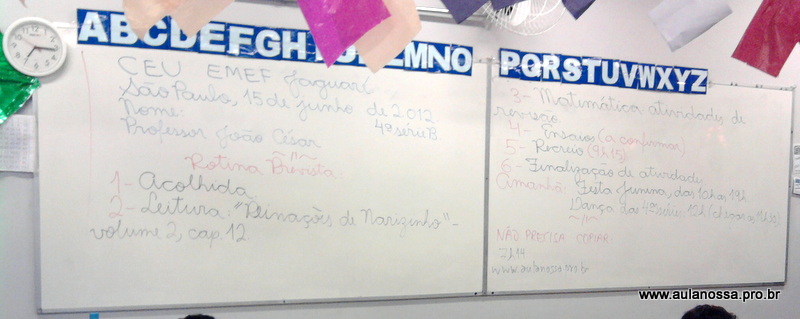 ABCDEFGH
MNO
PQRSTUVWXYZ
CEU EMEF Jaguaré
São Paulo, 15 de junho de 2012
Nome: 4ª série B.
Professor João César
Rotina Prevista:
1- Acolhida.
2- Leitura: "Reinações de Narizinho"-
volume 2, cap. 12.
3- Matemática atividades de
revisão
4- Ensaio (a confirmar)
5- Recreio (9h15)
6- Finalização de atividade
Amanhã: Festa Junina, das 10h às
Dança das 4ªs séries 12h (chegar às
NÃO PRECISA COPIAR:
7h14
www.aulanossa.pro.br
www.aulanossa.pro.br